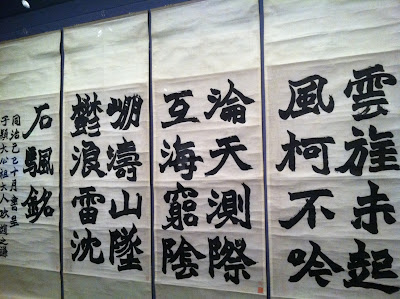 雲旌未起
風柯不吟
淪天測際
互海窮陰
崩濤山墜
鬱浪雷沈
石颿銘
同治己巳十月書呈
子穎大公祖大人 趙之謙